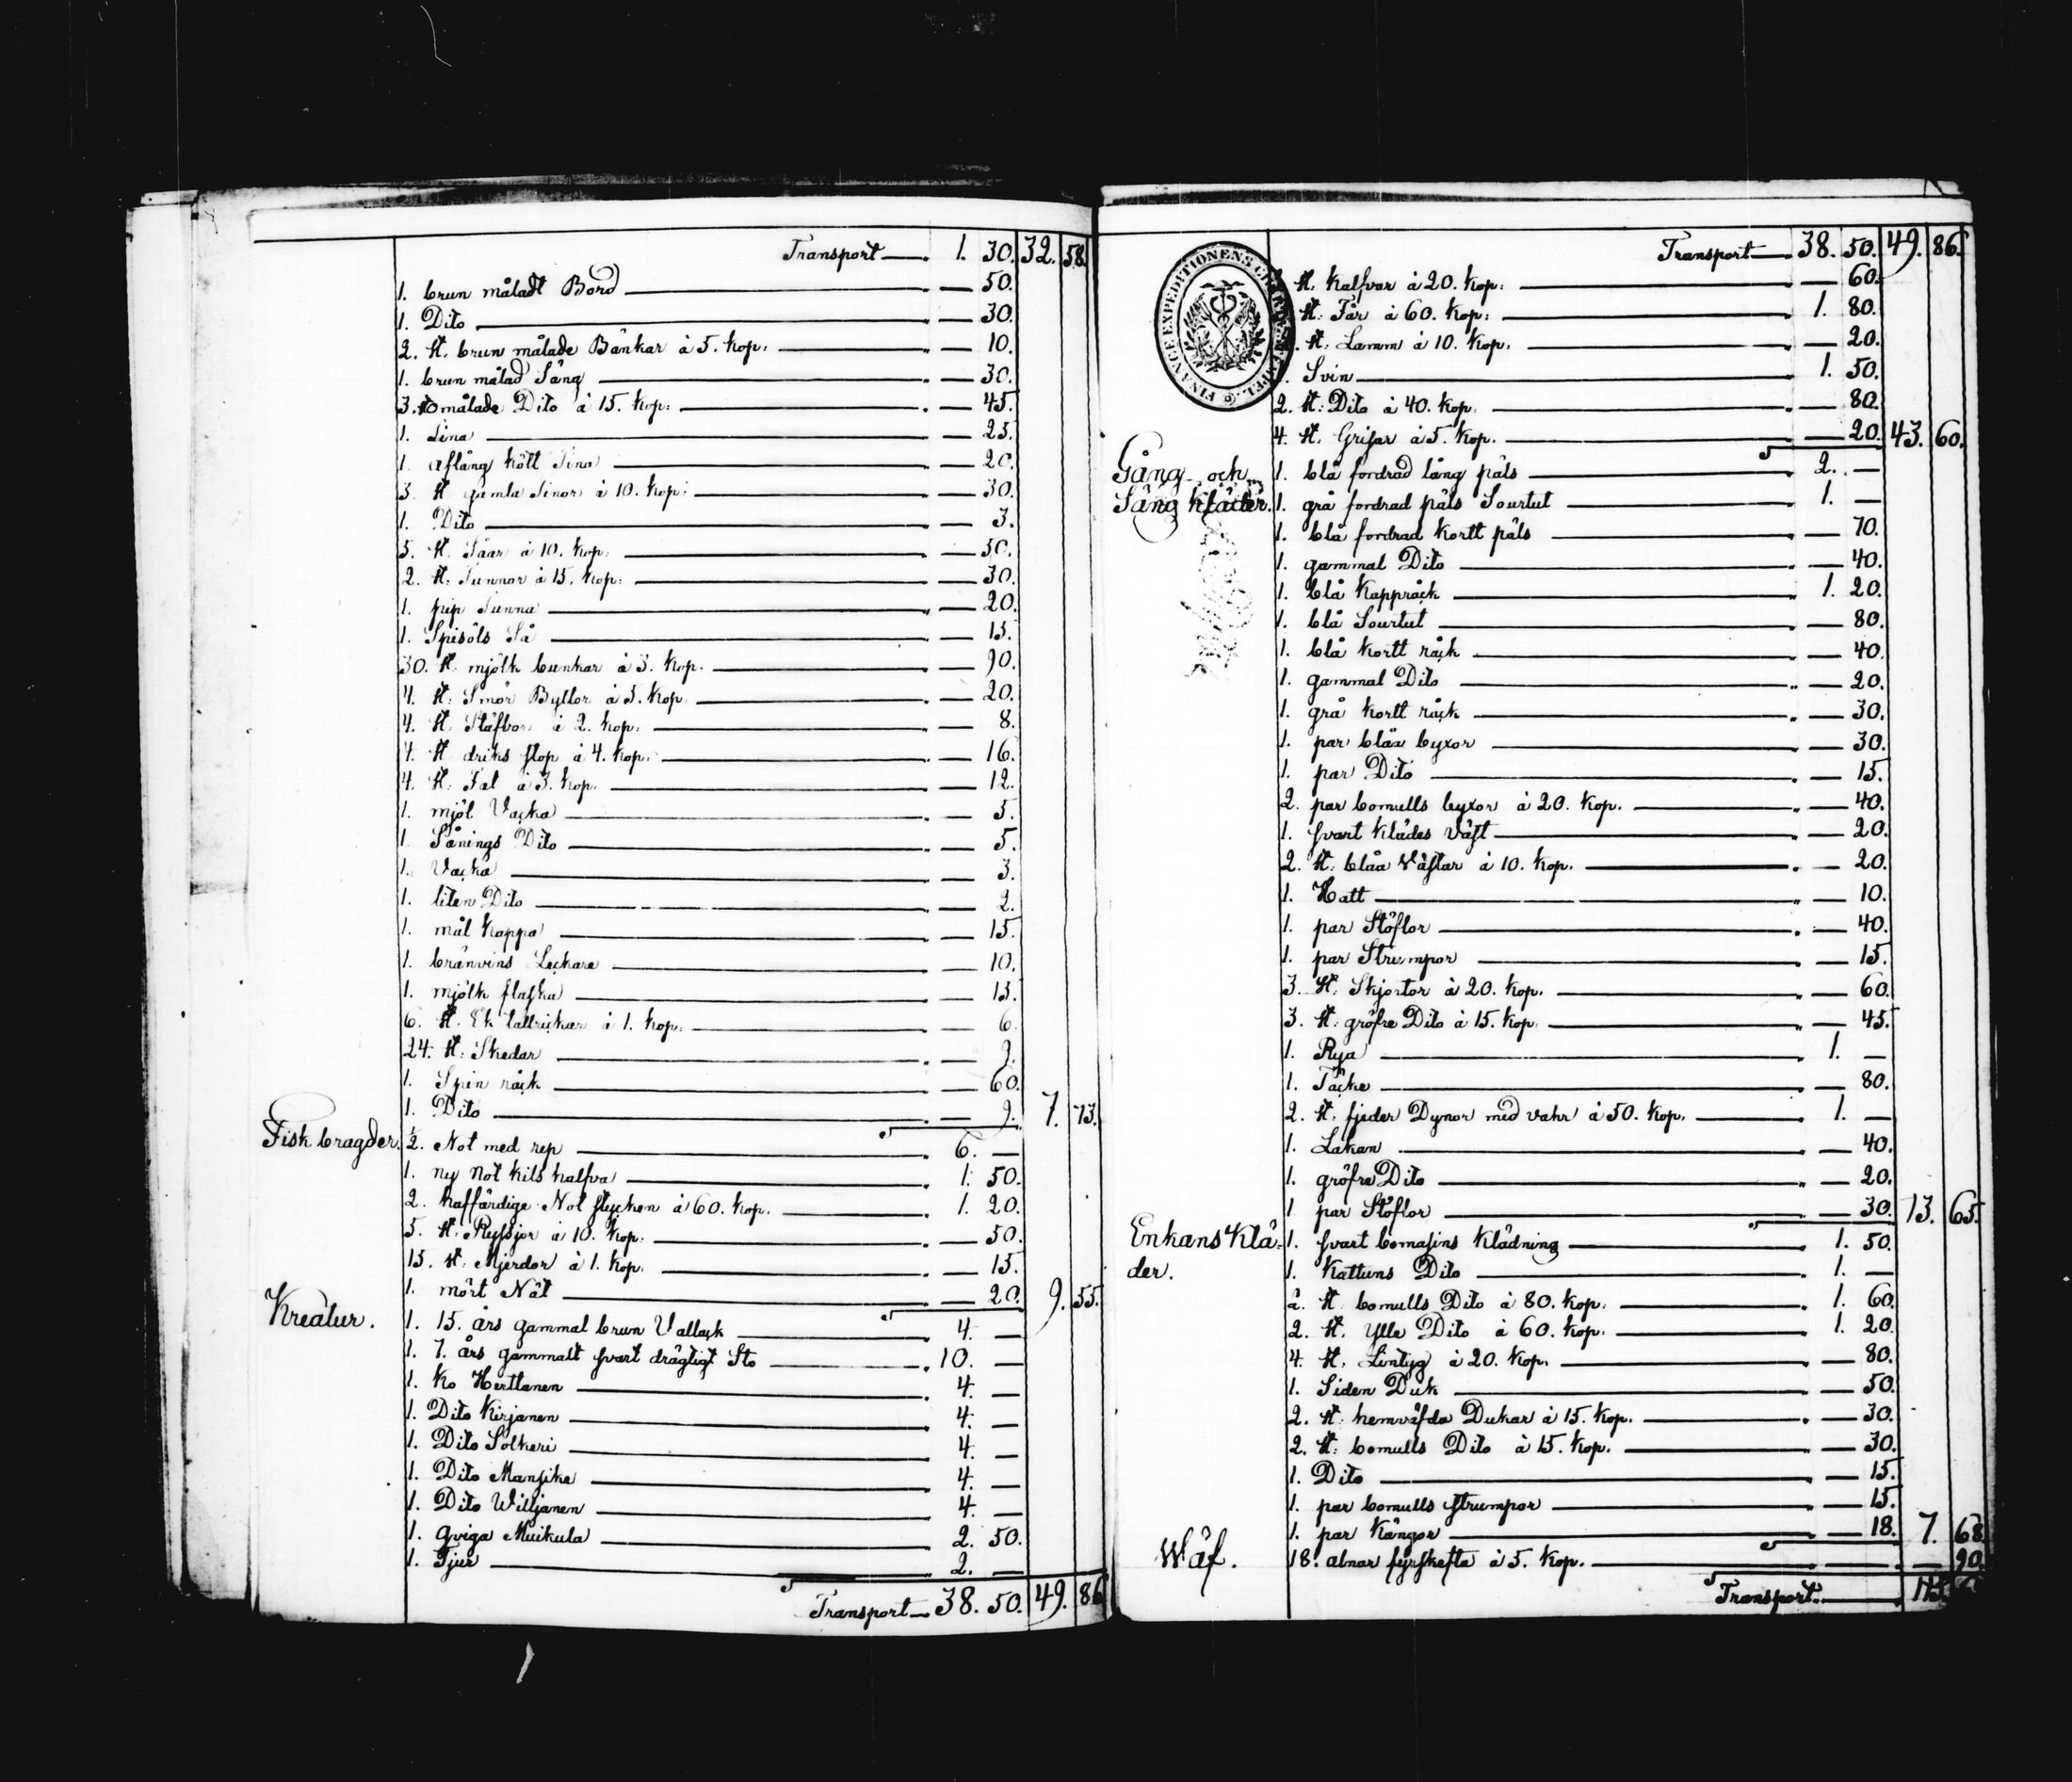 Transport 1. 30. 32. 58.
1. brun måladt Bord — 50.
1. Dito — 30.
2. st. brun målade Bänkar à 5. kop. — 10.
1. brun målad Säng — 30.
3. omålade Dito à 15. kop. — 45.
1. Tina — 25.
1. aflång kött Tina — 20.
3. st. gamla Tinor à 10. kop. — 30.
1. Dito — 3.
5. st. Såar à 10. kop. — 50.
2. st. Tunnor à 15. kop. — 30.
1. pip Tunna — 20.
1. Spisöls Så — 15.
30. st. mjölk bunkar à 3. kop. — 90.
4. st. Smör Byttor à 5. kop. — 20.
4. st. Stäfvor à 2. kop. — 8.
4. st. driks stop à 4. kop. — 16.
4. st. Fat à 3. kop. — 12.
1. mjöl Vacka — 5.
1. Sånings Dito — 5.
1. Vacka — 3.
1. liten Dito — 2.
1. mål kappa — 15.
1. bränvins Leckare — 10.
1. mjölk flaska — 15.
6. st. Ek tallrickar à 1. kop. — 6.
24. st. Skedar — 9.
1. Spin råck — 60.
1. Dito — 9. 7. 73.
Fisk bragder. ½. Not med rep 6. —
1. ny Not kils halfva 1. 50.
2. halffärdige Not stycken à 60. kop. 1. 20.
5. st. Ryssjor à 10. kop. — 50.
15. st. Mjerdor à 1. kop. — 15.
1. mört Nät — 20. 9. 55.
Kreatur. 1. 15. års gammal brun Vallack 4. —
1. 7. års gammalt svart drägtigt Sto 10. —
1. Ko Herttanen 4. —
1. Dito Kirjanen 4. —
1. Dito Solkeri 4. —
1. Dito Mansike 4. —
1. Dito Williänen 4. —
1. qviga Muikula 2. 50.
1. Tjur 2. —
Transport 38. 50. 49. 86
FINANCE EXPEDITIONENS
Transport 38. 50. 49. 86.
st. kalfvar à 20. kop. — 60.
st. Får à 60. kop. 1. 80.
st. Lamm à 10. kop. — 20.
Svin 1. 50.
2. st. Dito à 40. kop. — 80.
4. st. Grisar à 5. kop. — 20. 43. 60.
Gång och
Säng kläder. 1. blå fordrad lång päls 2. —
1. grå fordrad päls Sourtut 1. —
1. blå fordrad kortt päls — 70.
1. gammal Dito — 40.
1. blå Kappråck 1. 20.
1. blå Sourtut — 80.
1. blå kortt råck — 40.
1. gammal Dito — 20.
1. grå kortt råck — 30.
1. par blåa byxor — 30.
1. par Dito — 15.
2. par bomulls byxor à 20. kop. — 40.
1. svart klädes väst — 20.
2. st. blåa västar à 10. kop. — 20.
1. Hatt — 10.
1. par Stöflor — 40.
1. par Strumpor — 15.
3. st. Skjortor à 20. kop. — 60.
3. st. gröfre Dito à 15. kop. — 45.
1. Rya 1. —
1. Täcke — 80.
2. st. fjeder Dynor med vahr à 50. kop. 1. —
1. Lakan — 40.
1. gröfre Dito — 20.
1 par Stöflor — 30. 13. 65.
Enkans Klä- 1. svart bomasins Klädning 1. 50.
der. 1. Kattuns Dito 1. —
2. st. bomulls Dito à 80. kop. 1. 60.
2. st. Ylle Dito à 60. kop. 1. 20.
4. st. Lintyg à 20. kop. — 80.
1. Siden Duk — 50.
2. st. hemväfda Dukar à 15. kop. — 30.
2. st. bomulls Dito à 15. kop. — 30.
1. Dito — 15.
1. par bomulls strumpor — 15.
1. par Kängor — 18. 7. 68
Wäf. 18. alnar fyrskefta à 5. kop. — 90.
Transport